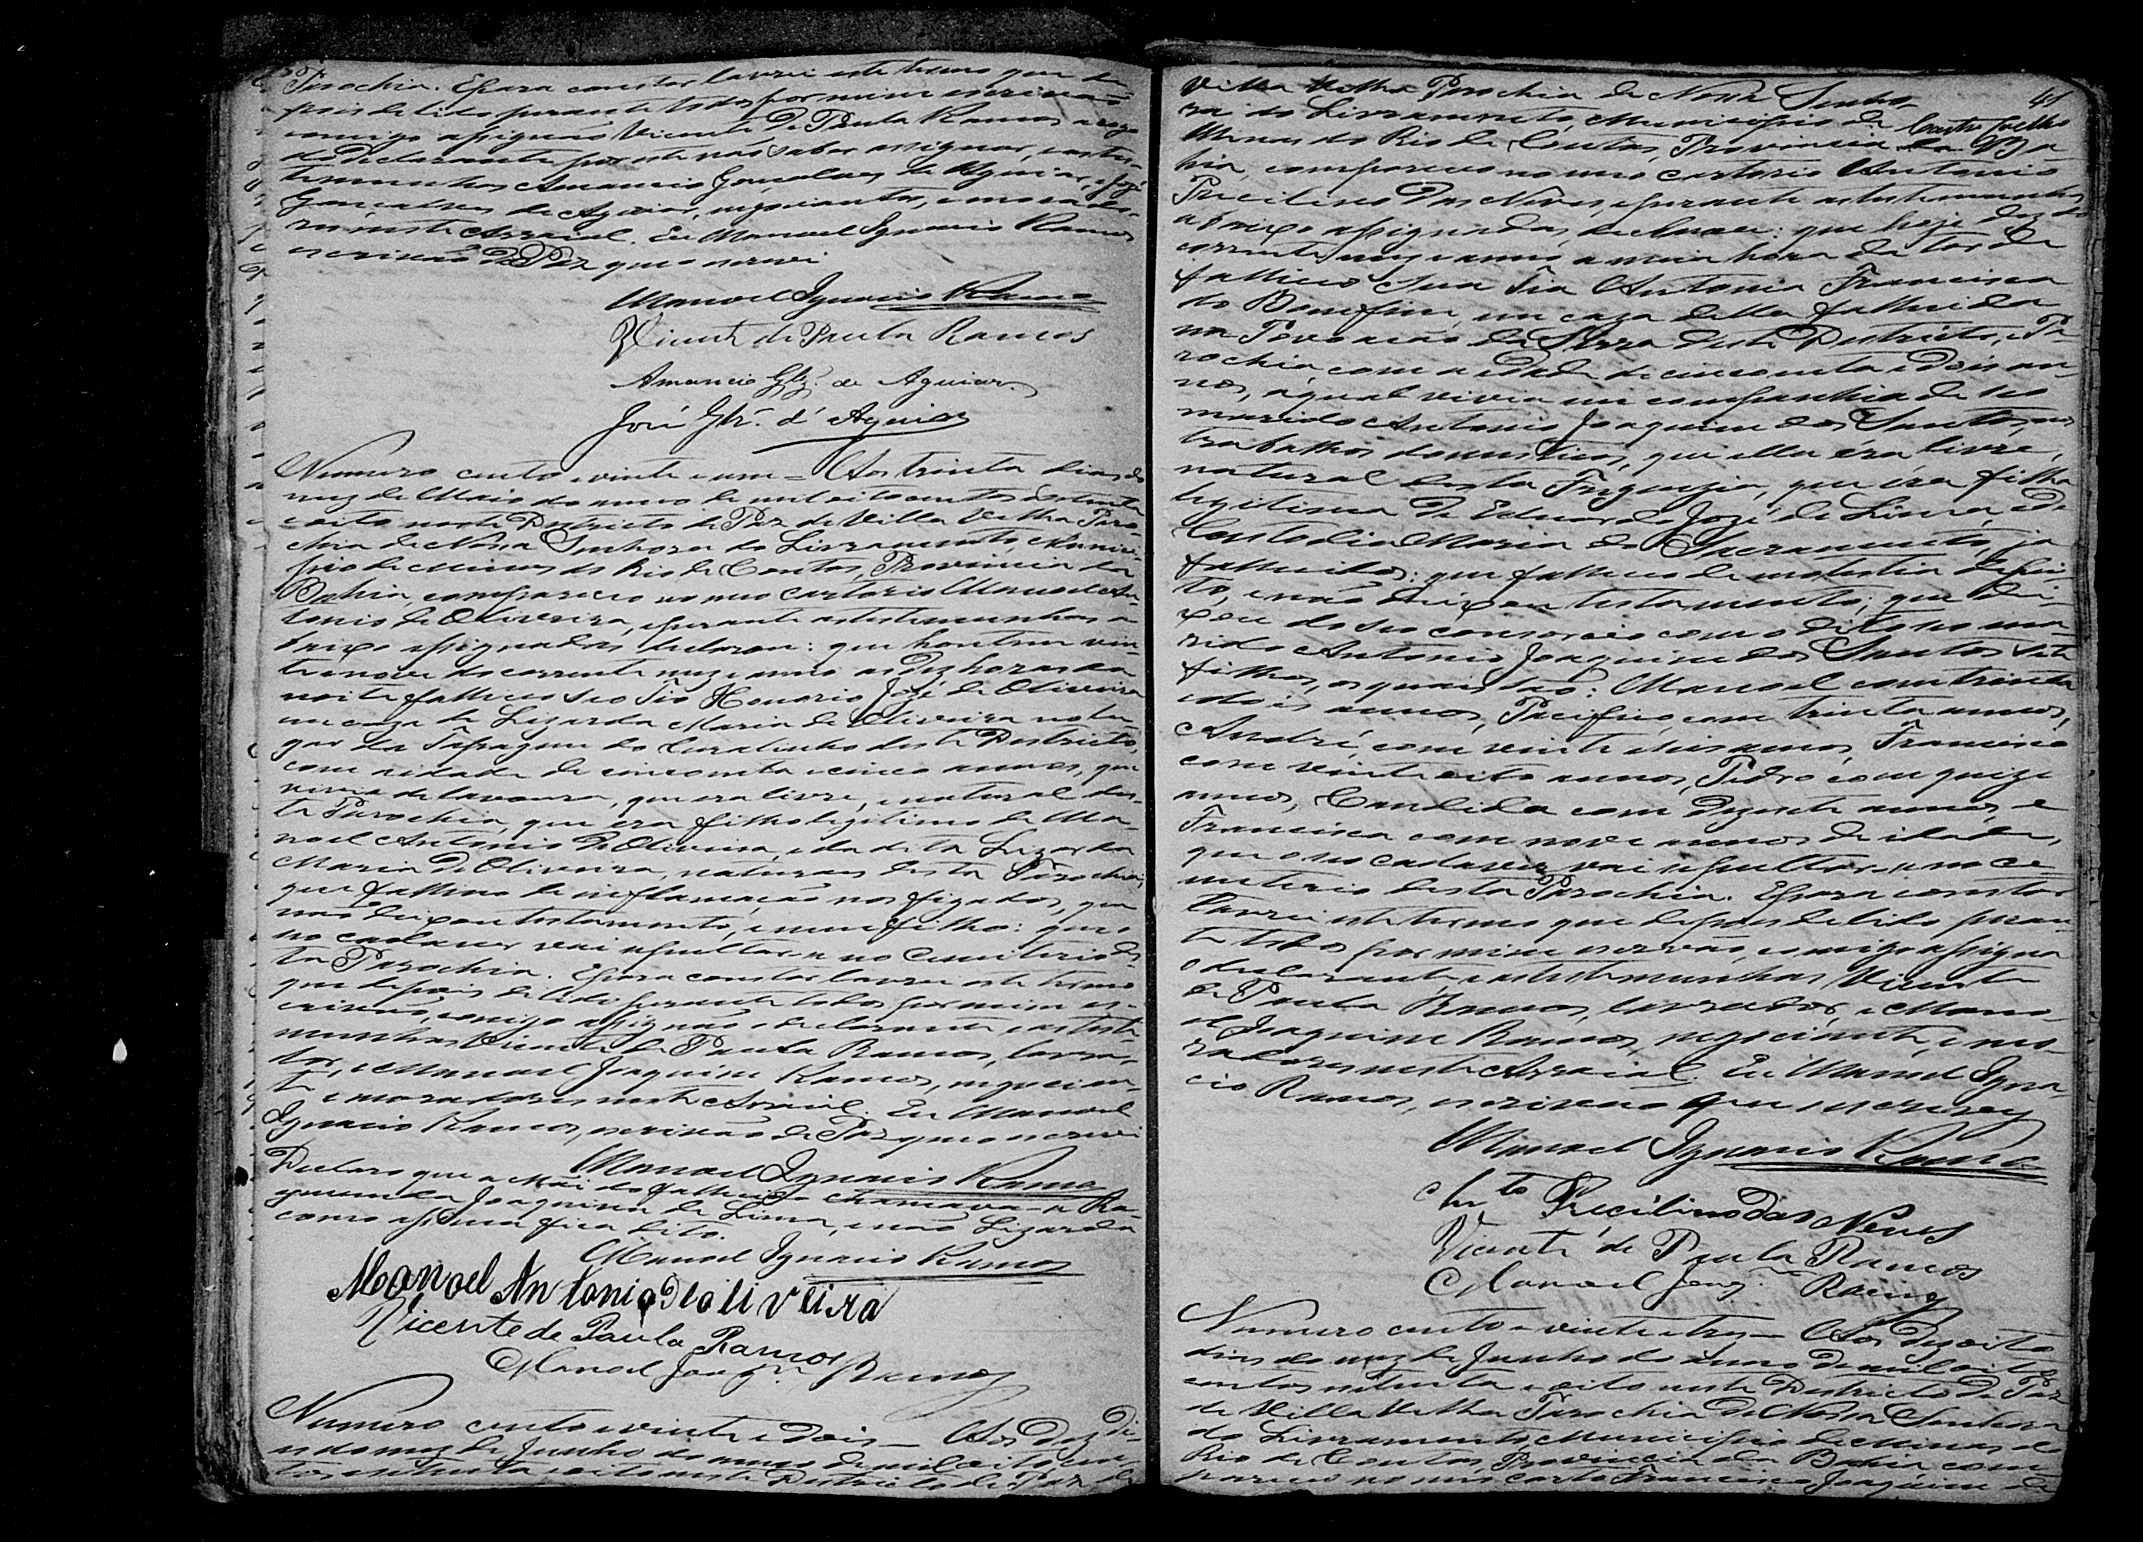 Parochia. E para constar lavrei este termo que de-
pois de lido perante todos por mim escrivão
comigo assignão Vicente de Paula Ramos a rogo
do declarante por este não saber assignar, e as tes-
temunhas Amancio Gonçalves de Aguiar, e José
Gonçalves de Aguiar, negociantes, e morado-
res neste Arraial. Eu Manoel Ignacio Ramos
escrivão de Paz que o escrevi
Manoel Ignacio Ramos
Vicente de Paula Ramos
Amancio Glz. de Aguiar
José Glz. d'Aguiar
Numero cento e vinte e um = Aos trinta dias do
mez de Maio do anno de mil oito centos e setenta
e oito neste Destricto de Paz de Villa Velha Paro-
chia de Nossa Senhora do Livramento, Munici-
pio de Minas do Rio de Contas, Provincia da
Bahia, compareceo no meo cartorio Manoel An-
tonio de Oliveira, e perante as testemunhas a-
baixo assignadas declarou: que hontem vin-
te e nove do corrente mez e anno as dez horas da
noite falleceo seo Tio Honorio José de Oliveira
em caza de Lizarda Maria de Oliveira no lu-
gar da Tapagem do Curalinho deste Destricto,
com a idade de cincoenta e cinco annos, que
vivia de lavoura, que era livre, e natural des-
ta Parochia, que era filho legitimo de Ma-
noel Antonio de Oliveira, e da dita Lizarda
Maria de Oliveira, naturaes desta Parochia,
que falleceo de inflamação nos figados, que
não deixou testamento, e nem filho: que o
seo cadaver vai sepultar-se no Cemiterio des-
ta Parochia. E para constar lavrei este termo
que depois de lido perante todos por mim es-
crivão, comigo assignão o declarante e as teste-
munhas Vicente de Paula Ramos, lavra-
dor, e Manoel Joaquim Ramos, negocian-
te e moradores neste Arraial. Eu Manoel
Ignacio Ramos, escrivão de Paz que o escrevi
Manoel Ignacio Ramos
Declaro que a Mãi do fallecido chamava-se Ra-
imunda Joaquina de Lima, e não Lizarda
como assima fica dito.
Manoel Ignacio Ramos
Manoel Antonio de oliveira
Vicente de Paula Ramos
Manoel Joaqm Ramos
Numero cento e vinte e dois = Aos dez di-
as do mez de Junho do anno de mil oito cen-
tos e setenta e oito neste Destricto de Paz de
41
Villa Velha Parochia de Nossa Senho-
ra do Livramento, Municipio de
Minas do Rio de Contas, Provincia da Ba-
hia, compareceo no meo cartorio Antonio
Precilino das Neves, e perante as testemunhas
abaixo assignadas, declarou: que hoje dez do
corrente mez e anno a meia hora da tarde
falleceo sua Tia Antonia Francisca
do Bomfim, em caza della fallecida
na Povoação da Serra deste Destricto, e Pa-
rochia com a idade de cincoenta e dois an-
nos, a qual vivia em companhia de seo
marido Antonio Joaquim dos Santos, nos
trabalhos domesticos, que ella éra livre,
natural desta Freguezia, que éra filha
legitima de Eduardo José de Lima, e de
Custodia Maria do Sacramento, já
fallecidos: que falleceo de molestia de pei-
to, e não deixou testamento; que dei-
xou do seo consorcio com o dito seo ma-
rido Antonio Joaquim dos Santos sete
filhos, os quaes são: Manoel com trinta
e dois annos, Pacifico, com trinta annos,
André, com vinte e seis annos, Francisco
com vinte oito annos, Pedro com quize
annos, Candida com dezesete annos, e
Francisca com nove annos de idade,
que o seo cadaver vai sepultar-se no ce-
miterio desta Parochia. E para constar
lavrei este termo que depois de lido peran-
te todos por mim escrivão, comigo assigna
o declarante, e as testemunhas Vicente
de Paula Ramos, lavrador, e Mano-
el Joaquim Ramos, negociante, e mo-
radores neste Arraial. Eu Manoel Igna-
cio Ramos, escrivão que escrevy
Manoel Ignacio Ramos
Anto Precilino das Neves
Vicente de Paula Ramos
Manoel Joaqm Ramos
Numero cento e vinte e tres = Aos dezoito
dias do mez de Junho do anno de mil e oito
centos e setenta e oito neste Destricto de Paz
de Villa Velha Parochia de Nossa Senhora
do Livramento, Municipio de Minas do
Rio de Contas, Provincia da Bahia com-
pareceo no meo carto Francisco Joaquim de